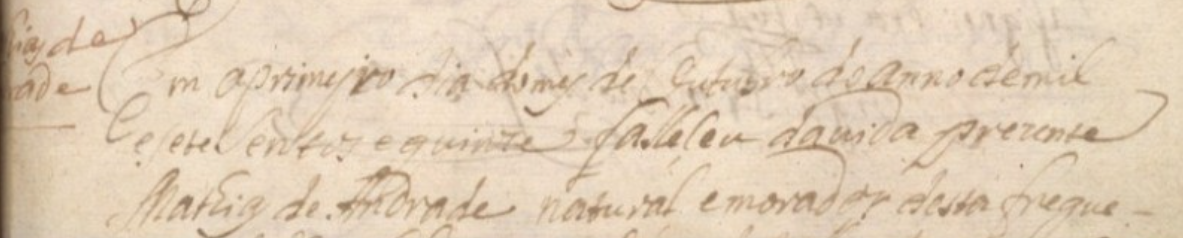 ias de
rade
Em aprimeyro dia domes de Outubro do anno de mil
e setecentos e quinze falleceu da vida prezente
Mathias de Andrade natural e morador desta fregue-